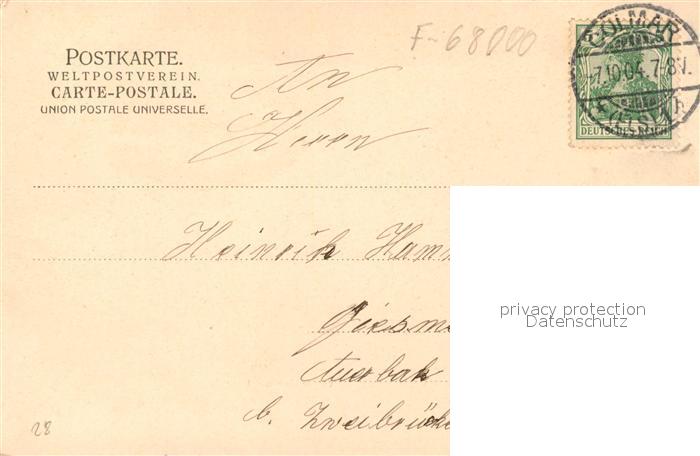 POSTKARTE.
WELTPOSTVEREIN.
CARTE-POSTALE.
UNION POSTALE UNIVERSELLE.
F-68000
COLMAR
-7.10.04.7-8V.
(ELS.)
DEUTSCHES REICH
An
Herrn
Heinrich Hamm
Auerbach
b. Zweibrücke
privacy protection
Datenschutz
28